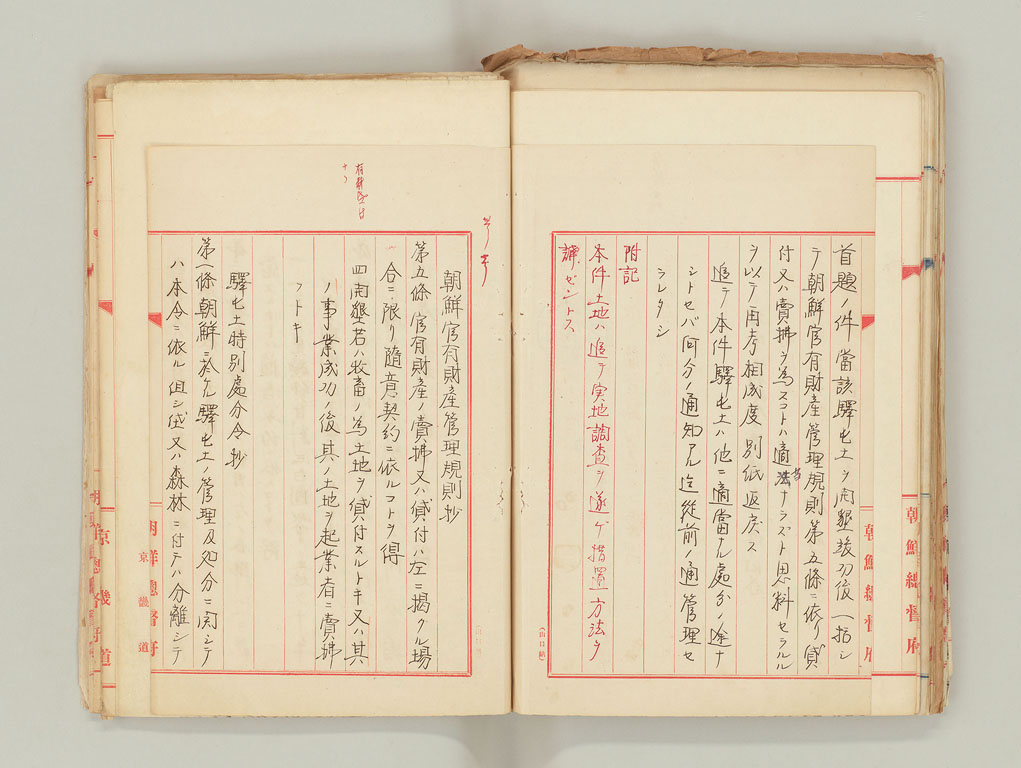 首題ノ件當該驛屯土ヲ開墾竣功後一括シ
テ朝鮮官有財産管理規則第五條ニ依リ貸
付又ハ賣拂ヲ為スコトハ適法ナラズト思料セラルル
ヲ以テ再考相成度別紙返戻ス
追テ本件驛屯土ハ他ニ適當ナル處分ノ途ナ
シトセバ何分ノ通知アル迄従前ノ通管理セ
ラレタシ
附記
本件土地ハ追テ実地調査ヲ遂ゲ措置方法ヲ
講ゼントス
朝鮮總督府
朝鮮總督府
朝鮮官有財産管理規則抄
第五條 官有財産ノ賣拂又ハ貸付ハ左ニ揭クル場
合ニ限リ隨意契約ニ依ルコトヲ得
四開墾若ハ牧畜ノ為土地ヲ貸付スルトキ又ハ其
ノ事業成功ノ後其ノ土地ヲ起業者ニ賣拂
フトキ
驛屯土特別處分令抄
第一條 朝鮮ニ於ケル驛屯土ノ管理及処分ニ関シテ
ハ本令ニ依ル但シ垈又ハ森林ニ付テハ分離シテ
朝鮮總督府
京畿道
京畿道